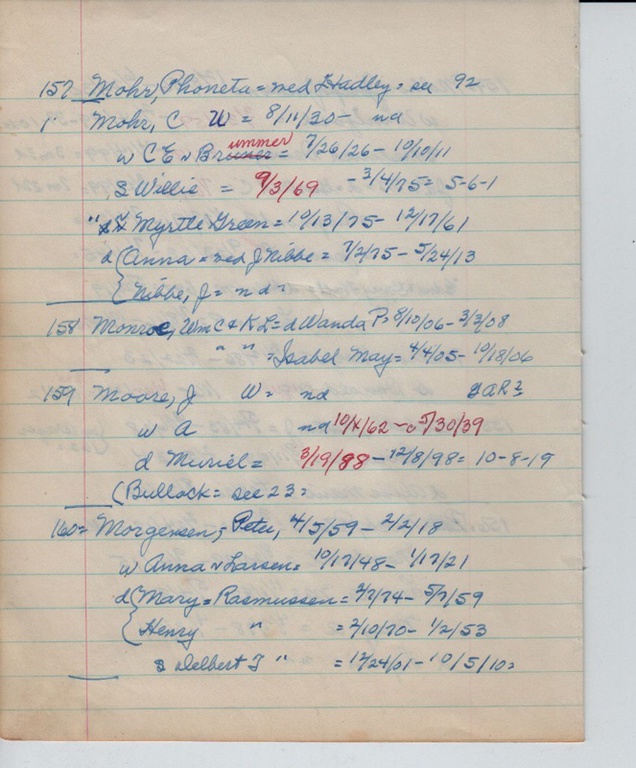 157 Mohr, Phoneta = med Hadley = see 92
1" Mohr, C W = 8/11/30 - nd
w C E v Bruner ummer = 7/26/26 - 10/10/11
S Willie = 9/3/69 - 3/4/75 = 5-6-1
" Myrtle Green = 10/13/75 - 12/17/61
d { Anna = med J Nibbe = 7/2/75 - 5/24/13
{ Nibbe, J = nd =
158 Monroe, Wm C & K L = d Wanda P = 8/10/06 - 3/3/08
" " = Isabel May = 4/4/05 - 10/18/06
159 Moore, J W = nd GAR?
w A nd 10/4/62 - c 5/30/39
d Muriel = 3/19/88 - 12/8/98 = 10-8-19
(Bullock = see 23 =
160 = Morgensen, Peter, 4/5/59 - 2/2/18
w Anna v Larsen = 10/17/48 - 1/17/21
d { Mary = Rasmussen = 2/7/74 - 5/7/59
{ Henry " = 2/10/70 - 1/2/53
s Delbert T " = 12/24/01 - 10/5/10 =